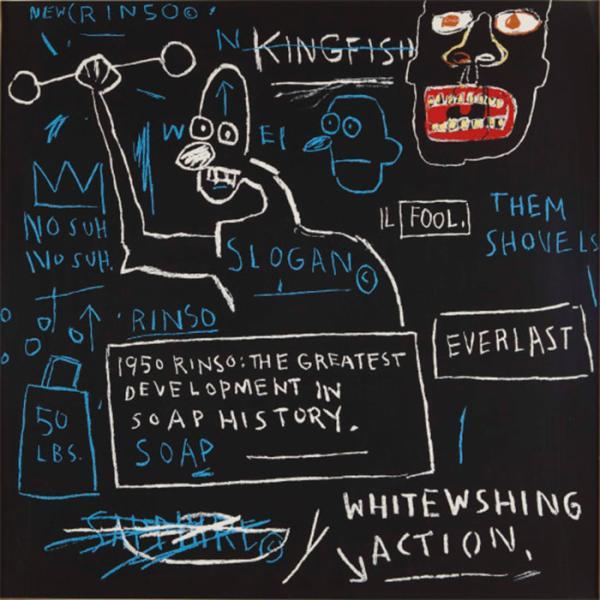 NEW(RINSO©:
N KINGFISH
W EI
IL FOOL.
THEM
SHOVELS
NO SUH
NO SUH.
SLOGAN©
RINSO
1950 RINSO: THE GREATEST
DEVELOPMENT IN
SOAP HISTORY.
SOAP
EVERLAST
50
LBS.
SAPPHIRE©
WHITEWSHING
ACTION.